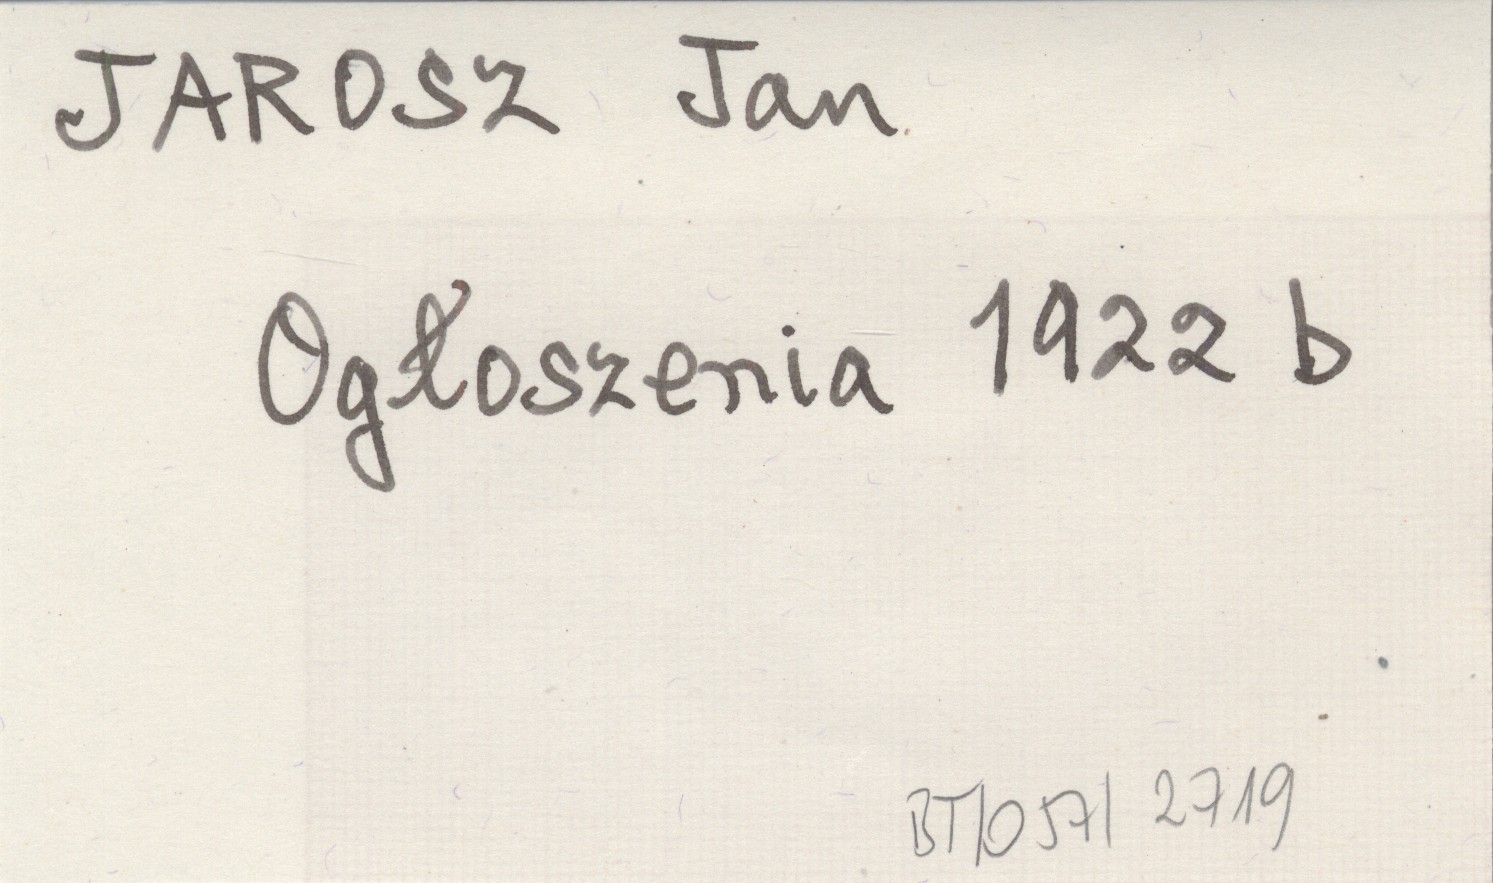 JAROSZ Jan
Ogłoszenia 1922 b
BT/057/ 2719